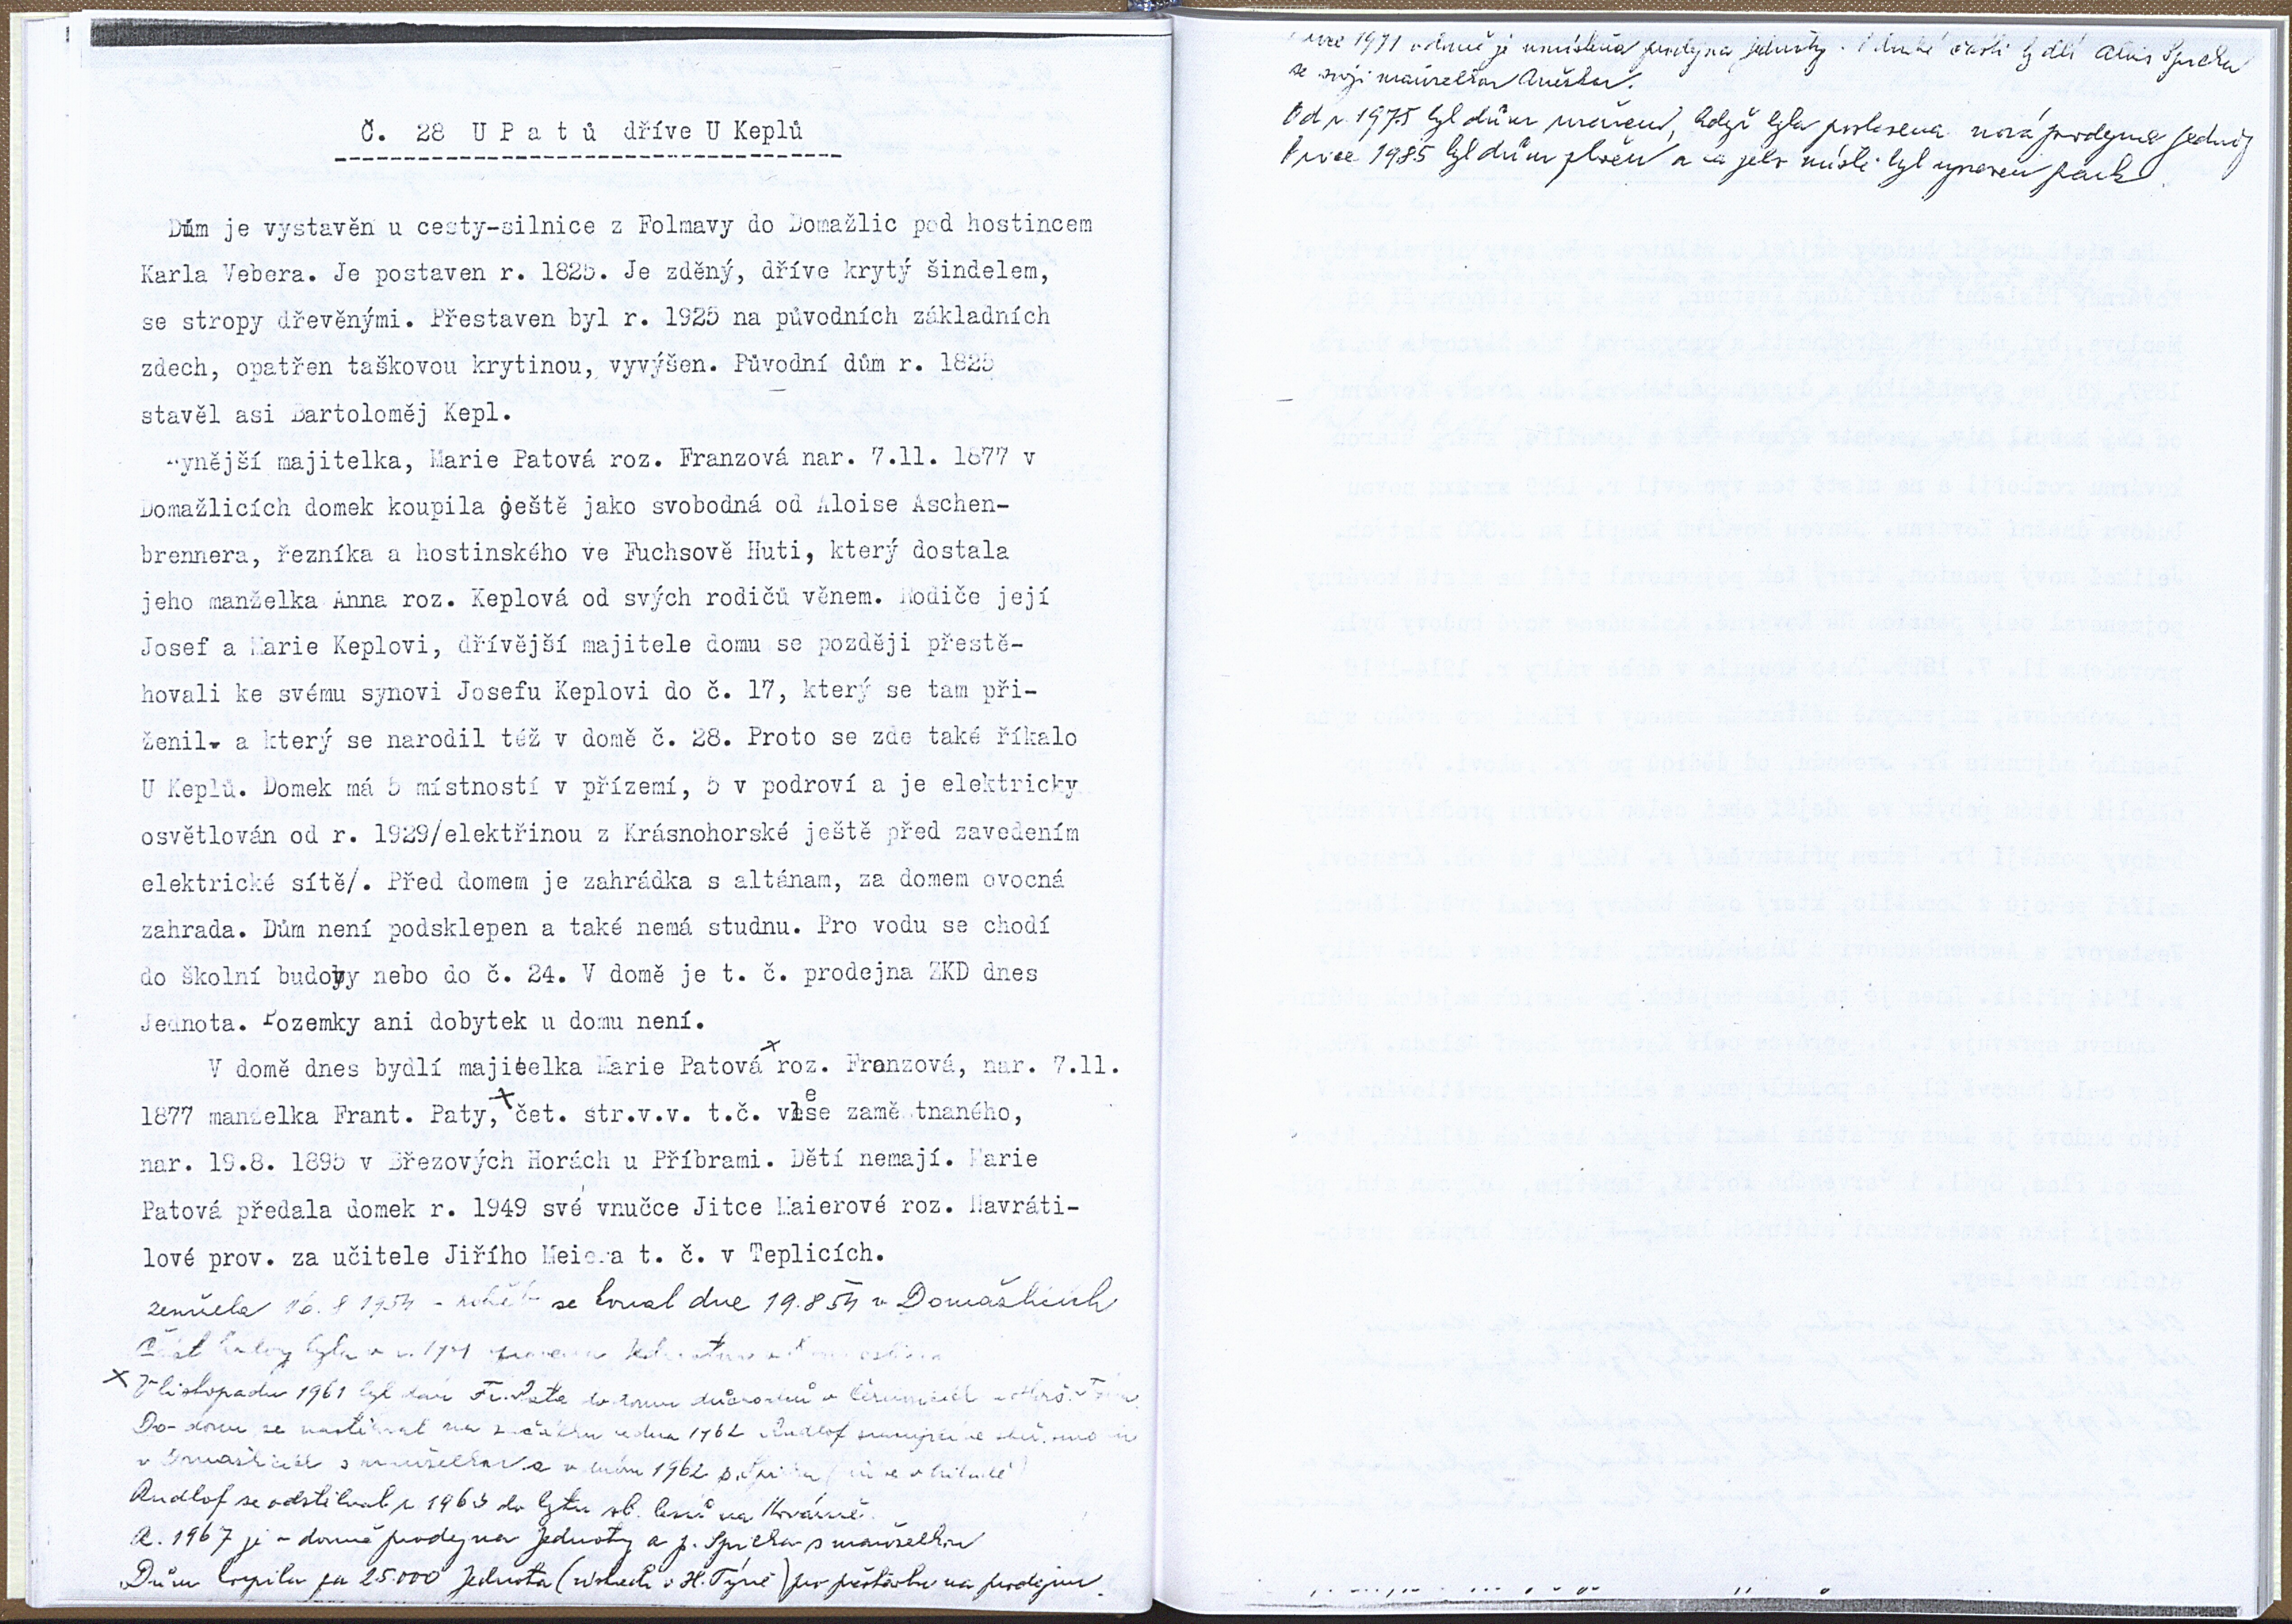 Č. 28 U P a t ů dříve U Keplů
Dům je vystavěn u cesty-silnice z Folmavy do Domažlic pod hostincem
Karla Vebera. Je postaven r. 1825. Je zděný, dříve krytý šindelem,
se stropy dřevěnými. Přestaven byl r. 1925 na původních základních
zdech, opatřen taškovou krytinou, vyvýšen. Původní dům r. 1825
stavěl asi Bartoloměj Kepl.
Nynější majitelka, Marie Patová roz. Franzová nar. 7.11. 1877 v
Domažlicích domek koupila ještě jako svobodná od Aloise Aschen-
brennera, řezníka a hostinského ve Fuchsově Huti, který dostala
jeho manželka Anna roz. Keplová od svých rodičů věnem. Rodiče její
Josef a Marie Keplovi, dřívější majitele domu se později přestě-
hovali ke svému synovi Josefu Keplovi do č. 17, který se tam při-
ženil a který se narodil též v domě č. 28. Proto se zde také říkalo
U Keplů. Domek má 5 místností v přízemí, 5 v podroví a je elektricky
osvětlován od r. 1929/elektřinou z Krásnohorské ještě před zavedením
elektrické sítě/. Před domem je zahrádka s altánam, za domem ovocná
zahrada. Dům není podsklepen a také nemá studnu. Pro vodu se chodí
do školní budovy nebo do č. 24. V domě je t. č. prodejna ZKD dnes
Jednota. Pozemky ani dobytek u domu není.
V domě dnes bydlí majitelka Marie Patová x roz. Franzová, nar. 7.11.
1877 manželka Frant. Paty, x čet. str.v.v. t.č. v lese zaměstnaného,
nar. 19.8. 1895 v Březových Horách u Příbrami. Dětí nemají. Marie
Patová předala domek r. 1949 své vnučce Jitce Maierové roz. Navráti-
lové prov. za učitele Jiřího Meiera t. č. v Teplicích.
zemřela 16. 8 1954 - pohřeb se konal dne 19.8 54 v Domažlicích
Část byla v r.
x V listopadu 1961 byl dán Fr. Pata do domu důchodců v
Do domu se nastěhoval na začátku ledna 1962 Rudlof
v Domažlicích s manželkou a v 1962 p. Spirka
Rudlof se odstěhoval r 1963 do bytu st. lesů na Kovárně.
R. 1967 je v domě prodejna Jednoty a p. Spirka s manželkou
Dům koupila za 25.000 Jednota (v H. Týně) pro přestavbu na prodejnu.
V roce 1971 v domě je umístěna prodejna Jednoty. V druhé části bydlí Alois Spirka
se svojí manželkou Anežkou.
Od r. 1975 byl dům uzavřen, když byla postavena nová prodejna Jednoty
V roce 1985 byl dům zbořen a na jeho místě byl upraven park